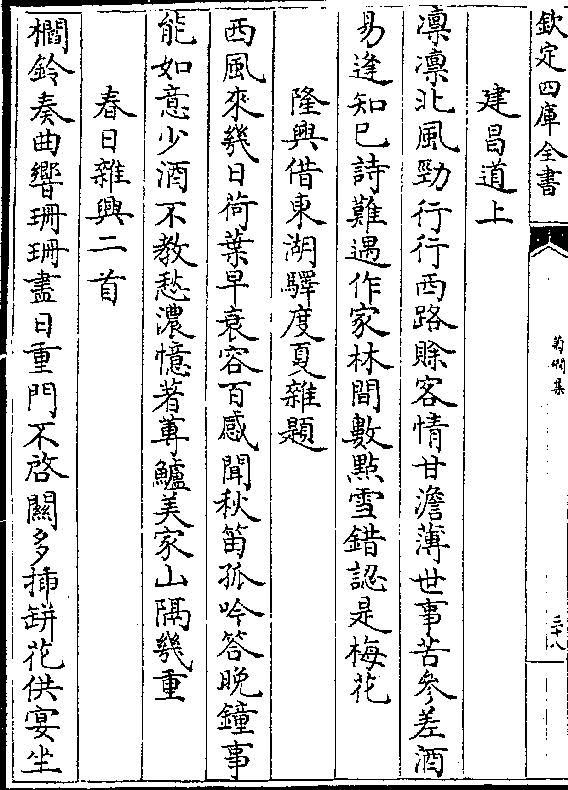 欽定四庫全書
菊磵集
二十八
建昌道上
凛凛北風勁行行西路賒客情甘澹薄世事苦參差酒
易逢知已詩難遇作家林間數點雪錯認是梅花
隆興借東湖驛度夏雜題
西風來幾日荷葉早衰容百感聞秋笛孤吟答晚鐘事
能如意少酒不教愁濃憶著蓴鱸美家山隔幾重
春日雜興二首
櫩鈴奏曲響珊珊盡日重門不啓關多插缾花供宴坐